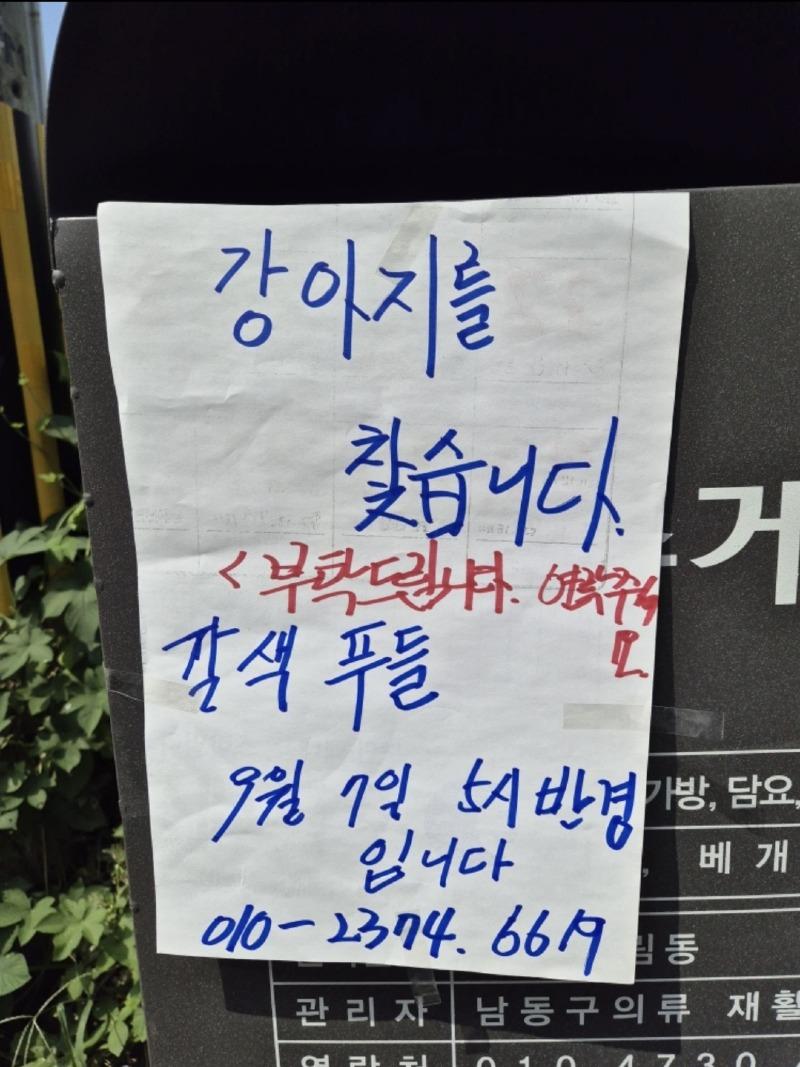 강아지를
찾습니다.
< 부탁드립니다. 연락주세
요.
갈색 푸들
9월 7일 5시 반경
입니다
010-2374.6619
거
가방, 담요,
, 베 개
림동
관 리 자 남 동 구 의 류 재 활
연 락 처 0 1 0 4 7 3 0